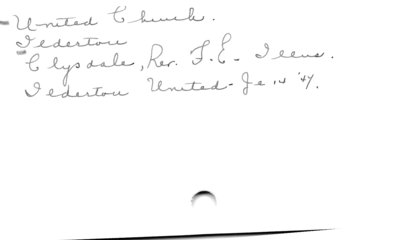 United Church.
Ilderton
Clysdale, Rev. F. E. - Illus.
Ilderton United - Je 14 '47.